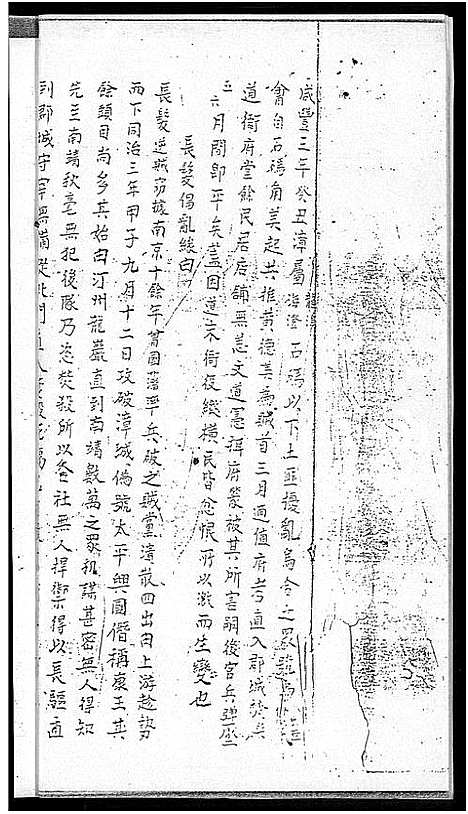 咸豐三年癸丑漳屬海澄石碼以下土匪擾亂烏合之眾號為
會自石碼角美起共推黃德美為賊首三月適值府考直入郡城焚其
道衙府堂餘民居店舖無恙文道憲祥府蒙被其所害嗣後官兵彈壓
五六月間即平矣蓋因道末衙役縱橫民皆忿恨所以激而生變也
長髮倡亂緣由
長髮逆賊竊據南京十餘年曾國藩率兵破之賊黨潰散四出由上游趁勢
而下同治三年甲子九月十二日攻破漳城偽號太平興國僭稱康王其
餘頭目尚多其始由汀州龍巖直到南靖數萬之眾秘謀甚密無人得知
先至南靖秋毫無犯後隊乃恣焚殺所以各社無人捍禦得以長驅直
到郡城守宰無備從北門直入